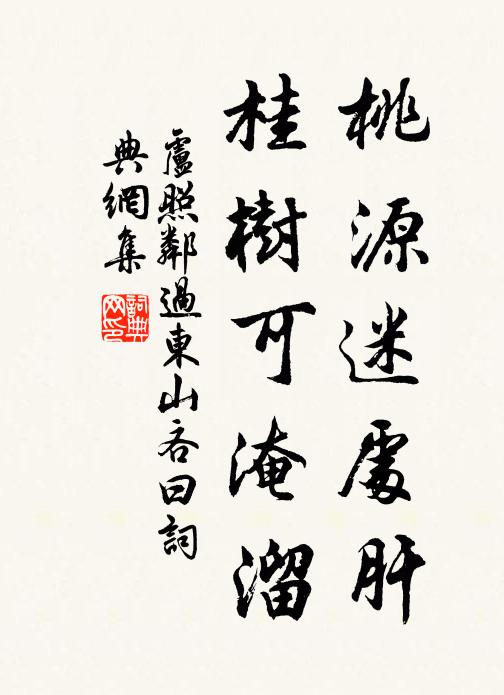 桃源迷處所
桂樹可淹溜
盧照鄰過東山谷曰詞
典網集
詞典網印